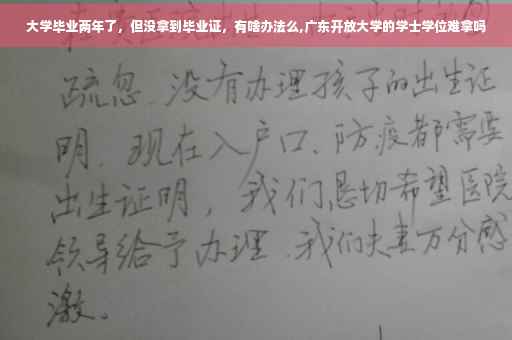 大学毕业两年了，但没拿到毕业证，有啥办法么,广东开放大学的学士学位难拿吗
疏忽、没有办理孩子的出生证
明、现在入户口、防疫都需要
出生证明，我们恳切希望医院
领导给予办理、我们夫妻万分感
激。